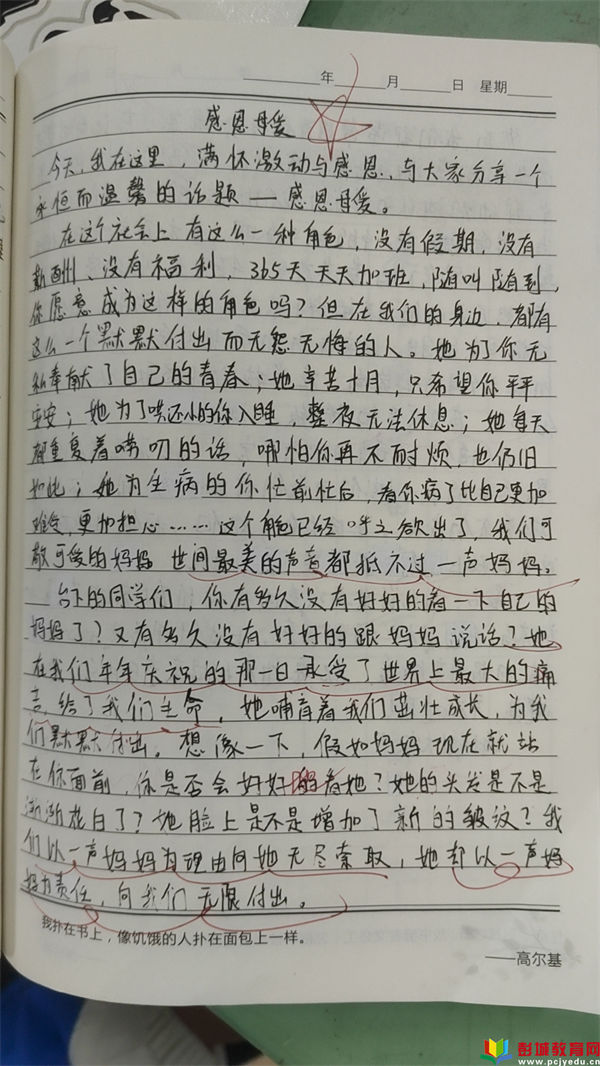 年 月 日 星期
感恩母爱
今天,我在这里,满怀激动与感恩,与大家分享一个
永恒而温馨的话题——感恩母爱。
在这个社会上有这么一种角色,没有假期,没有
薪酬、没有福利,365天天天加班,随叫随到,
你愿意成为这样的角色吗?但在我们的身边,都有
这么一个默默付出而无怨无悔的人。她为了你无
私奉献了自己的青春;她辛苦十月,只希望你平平
安安;她为了哄还小的你入睡,整夜无法休息;她每天
都重复着唠叨的话,哪怕你再不耐烦,也仍旧
如此;她为生病的你忙前忙后,看你病了比自己更加
难受,更加担心……这个角色已经呼之欲出了,我们可
敬可爱的妈妈,世间最美的声音都抵不过一声妈妈。
台下的同学们,你有多久没有好好的看一下自己的
妈妈了?又有多久没有好好的跟妈妈说话?她
在我们年年庆祝的那一日承受了世界上最大的痛
苦,给了我们生命,她哺育着我们茁壮成长,为我
们默默付出。想像一下,假如妈妈现在就站
在你面前,你是否会好好的看她?她的头发是不是
渐渐花白了?她脸上是不是增加了新的皱纹?我
们以一声妈妈为理由向她无尽索取,她却以一声妈
妈为责任,向我们无限付出。
我扑在书上,像饥饿的人扑在面包上一样。
——高尔基
彭城教育网
www.pcjyedu.cn